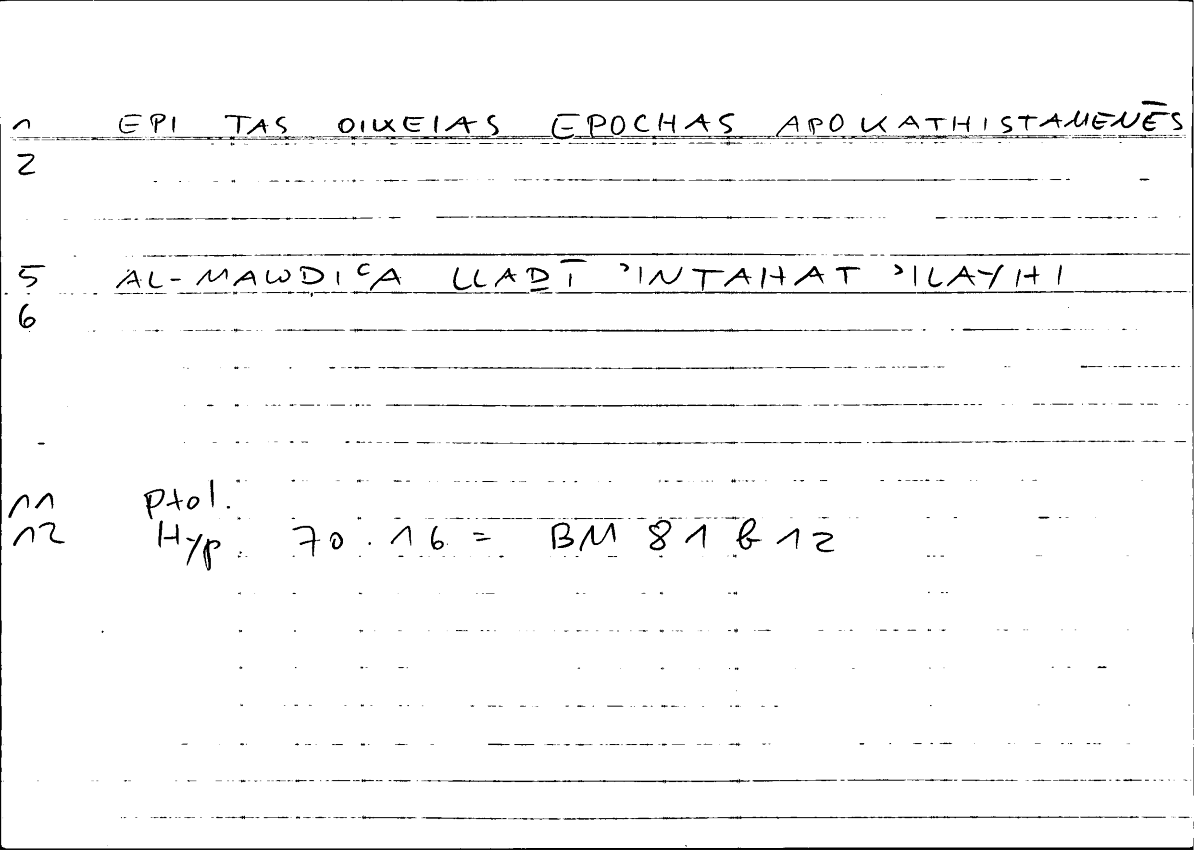 1 EPI TAS OIKEIAS EPOCHAS APOKATHISTAMENĒS
2
5 AL-MAWDIʿA LLAḎĪ ʾINTAHAT ʾILAYHI
6
11 Ptol.
12 Hyp. 70.16 = BM 81 b 12